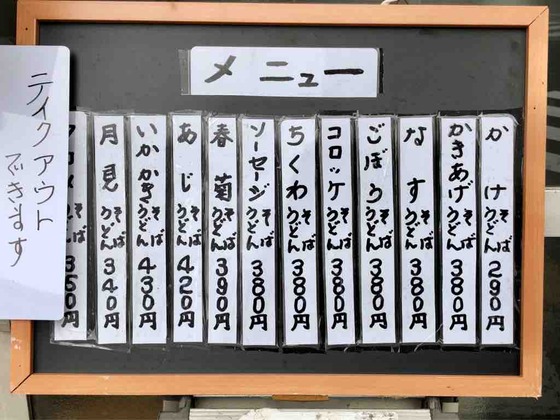 メニュー
かけそばうどん290円
かきあげそばうどん380円
なすそばうどん380円
ごぼうそばうどん380円
コロッケそばうどん380円
ちくわそばうどん380円
ソーセージそばうどん380円
春菊そばうどん390円
あじそばうどん420円
いかかきそばうどん430円
月見そばうどん340円
350円
テイクアウト
できます